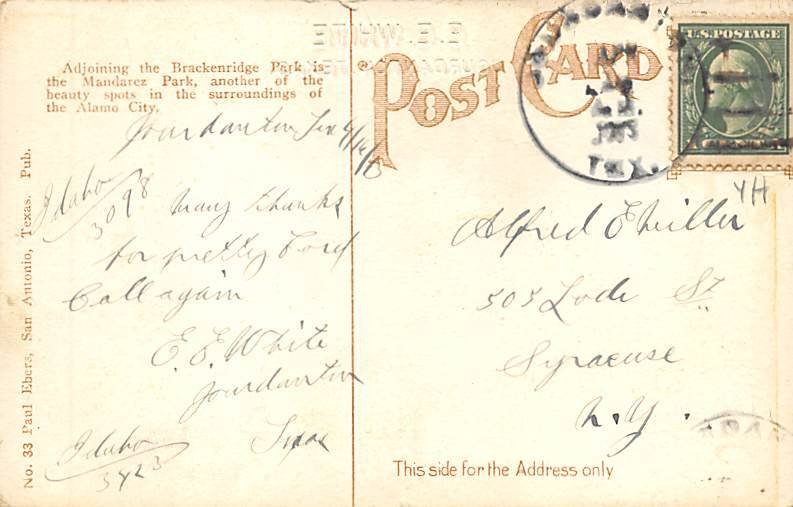 Adjoining the Brackenridge Park is
the Mandarez Park, another of the
beauty spots in the surroundings of
the Alamo City.
Jourdanton Tex
Idaho
3098
Many thanks
for pretty Card
Call again
E. E. White
Jourdanton
Texas
Idaho
3423
No. 33 Paul Ebers, San Antonio, Texas. Pub.
E. E. WHITE
POST CARD
TEX.
U.S. POSTAGE
YH
Alfred E Miller
505 Lodi St
Syracuse
N. Y.
This side for the Address only